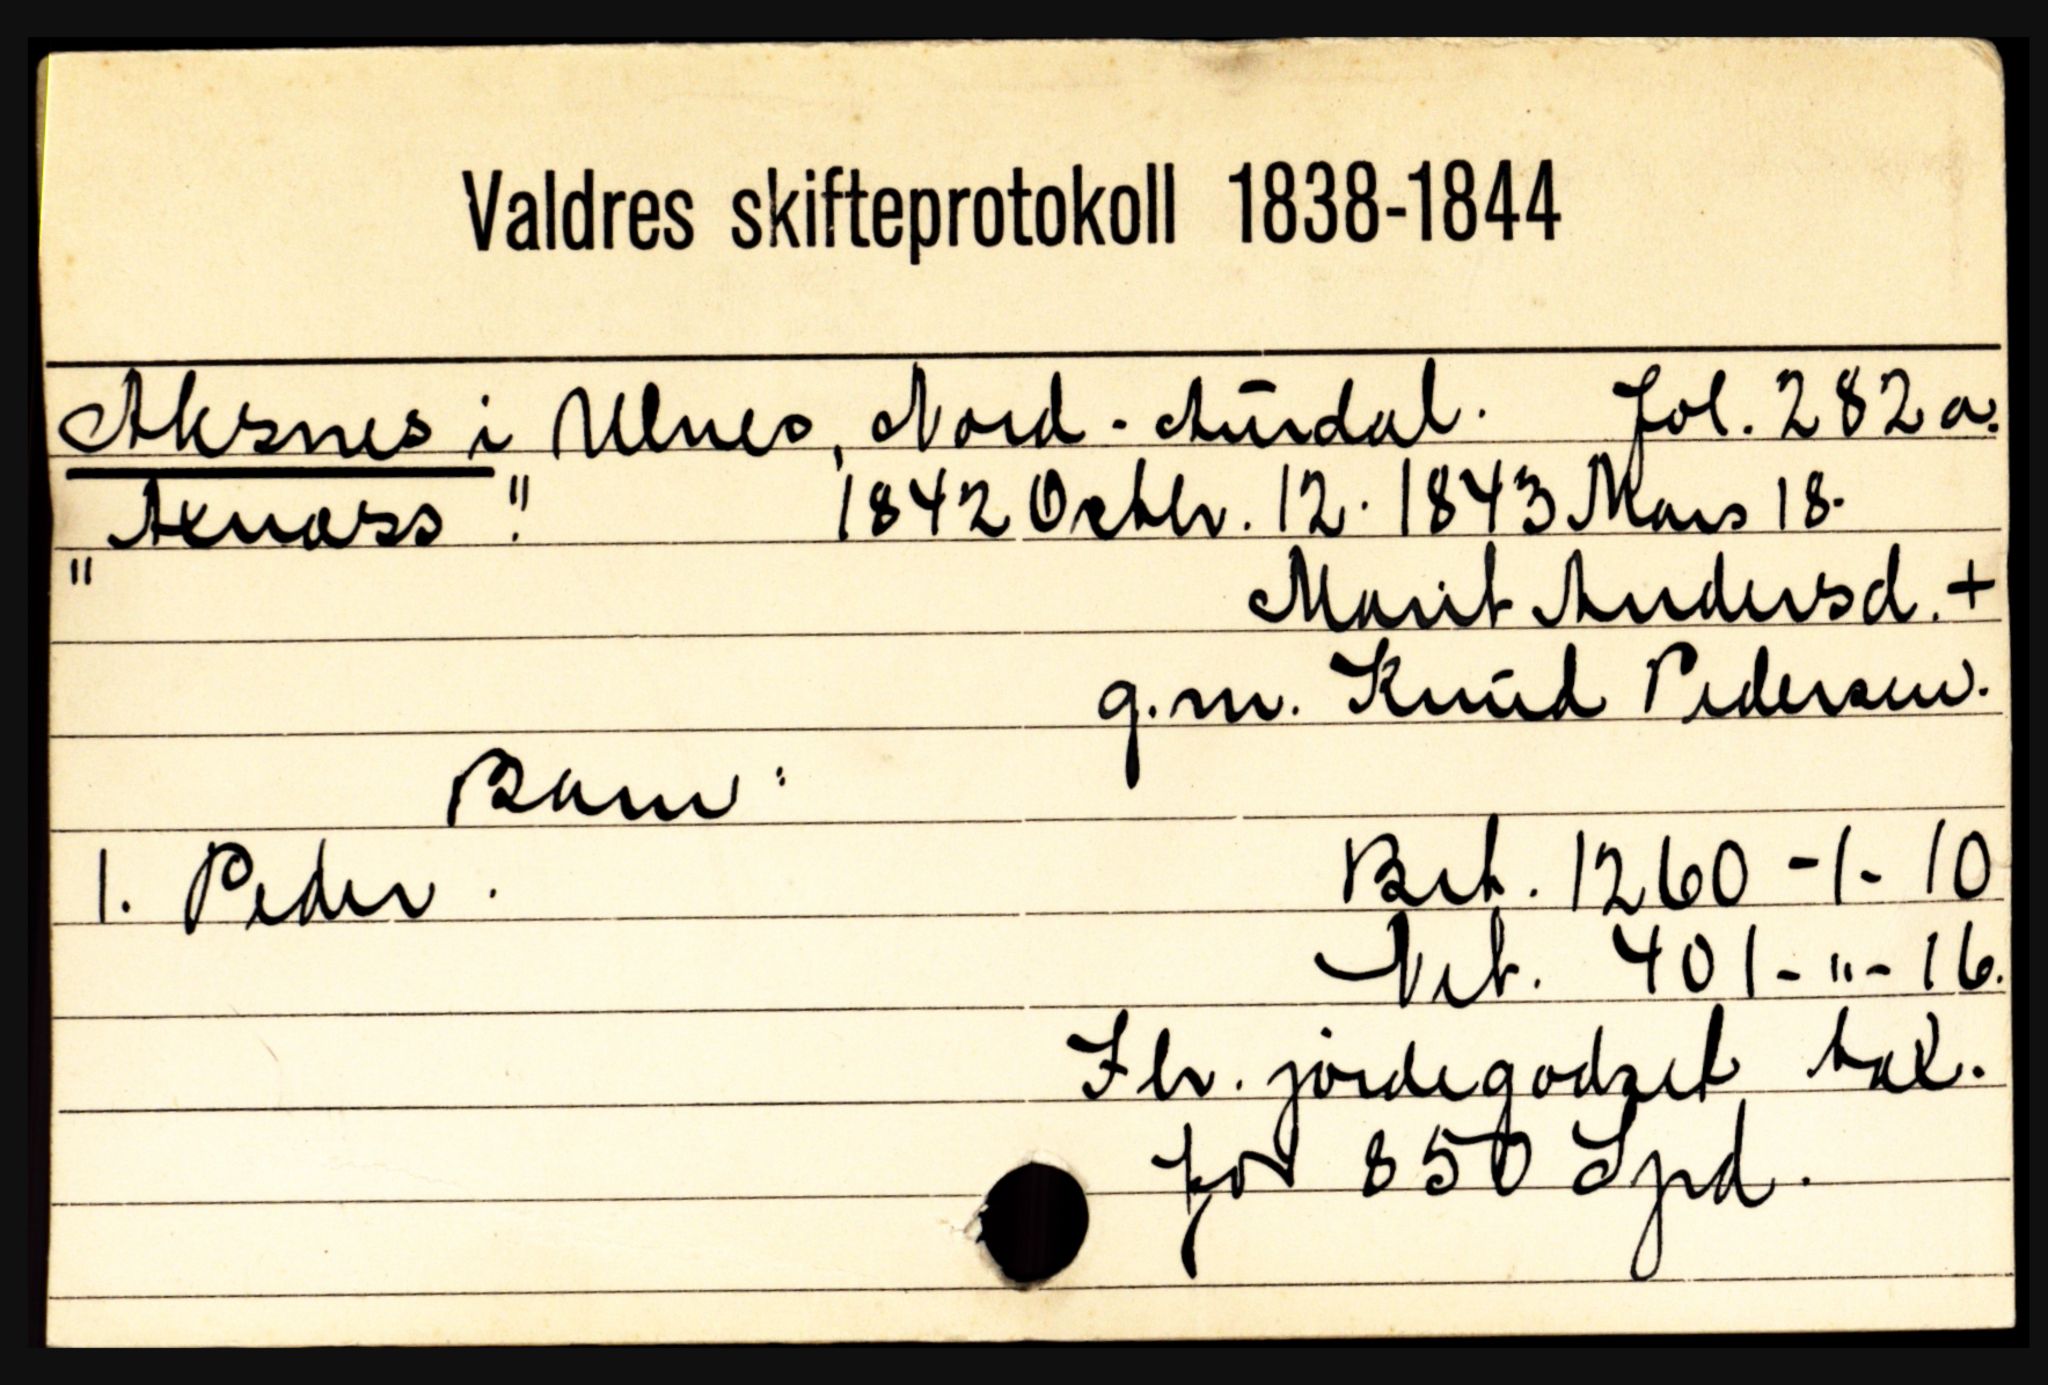 Valdres skifteprotokoll 1838-1844
Aksnes i Ulnes, Nord-Aurdal. fol. 282 a.
"Axnæss" 1842 Octbr. 12. 1843 Mars 18.
" Marit Andersd. +
g.m. Knud Pedersen.
Barn:
1. Peder. Brt. 1260-1-10
Net. 401-"-16.
Flv. jordegodset tax.
for 850 Spd.